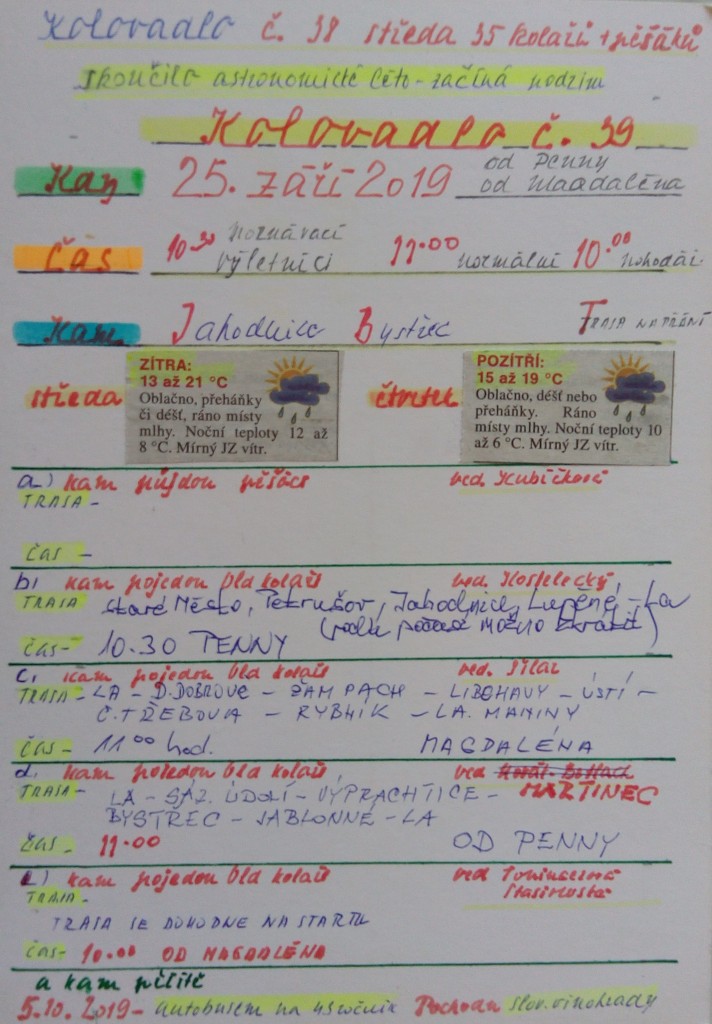 Kolovadlo č. 38 středa 35 kolařů + pěšáků
skončilo astronomické léto - začíná podzim
Kolovadlo č. 39
Kdy 25. září 2019 od Penny
od Magdaléna
Čas 10.30 poznávací výletníci 11.00 normální 10.00 pohodáři
Kam Jahodnice Bystřec Trasa na přání
středa ZÍTRA:
13 až 21 °C
Oblačno, přeháňky
či déšť, ráno místy
mlhy. Noční teploty 12 až
8 °C. Mírný JZ vítr.
čtvrtek POZÍTŘÍ:
15 až 19 °C
Oblačno, déšť nebo
přeháňky. Ráno
místy mlhy. Noční teploty 10
až 6 °C. Mírný JZ vítr.
a.) kam půjdou pěšáci ved. Kubíčková
TRASA -
ČAS -
b, kam pojedou bla kolaři ved. Kostelecký,
TRASA Staré Město, Petrušov, Jahodnice, Lupěné - La
(podle počasí možno zkrátit)
ČAS - 10.30 PENNY
c, kam pojedou bla kolaři ved. Šilar
TRASA - LA - D. DOBROUČ - ŽAMPACH - LIBCHAVY - ÚSTÍ -
Č. TŘEBOVÁ - RYBNÍK - LA. MANINY
ČAS - 11 00 hod. MAGDALÉNA
d. kam pojedou bla kolaři ved MARTINEC
TRASA - LA - SÁZ. ÚDOLÍ - VÝPRACHTICE -
BYSTŘEC - JABLONNÉ - LA
ČAS - 11.00 OD PENNY
e) kam pojedou bla kolaři ved
TRASA -
TRASA SE DOHODNE NA STARTU
ČAS - 10.00 OD MAGDALÉNA
a kam příště
5.10. 2019 - autobusem na 43 ročník Pochodu slov. vinohrady